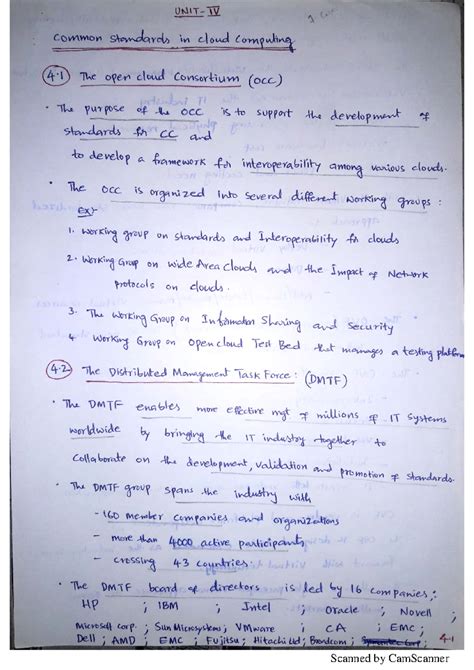 UNIT-IV
Common Standards in Cloud Computing
4.1 The open cloud Consortium (OCC)
• The purpose of the OCC is to support the development of
standards for CC and
to develop a framework for interoperability among various clouds.
• The OCC is organized into several different working groups:
Ex:-
1. Working group on standards and Interoperability for clouds
2. Working Group on wide Area Clouds and the Impact of Network
protocols on clouds.
3. The Working Group on Information Sharing and Security
4. Working Group on Open cloud Test Bed that manages a testing platform
4.2 The Distributed Management Task Force: (DMTF)
• The DMTF enables more effective mgt of millions of IT systems
worldwide by bringing the IT industry together to
Collaborate on the development, validation and promotion of standards.
• The DMTF group spans the industry with
- 160 member companies and organizations
- more than 4000 active participants
- crossing 43 countries
• The DMTF board of directors is led by 16 companies:
HP ; IBM ; Intel ; Oracle ; Novell ;
Microsoft corp. ; Sun Microsystems ; VMware ; CA ; EMC ;
Dell ; AMD ; EMC ; Fujitsu ; Hitachi Ltd ; Broadcom ;
4.1
Scanned by CamScanner